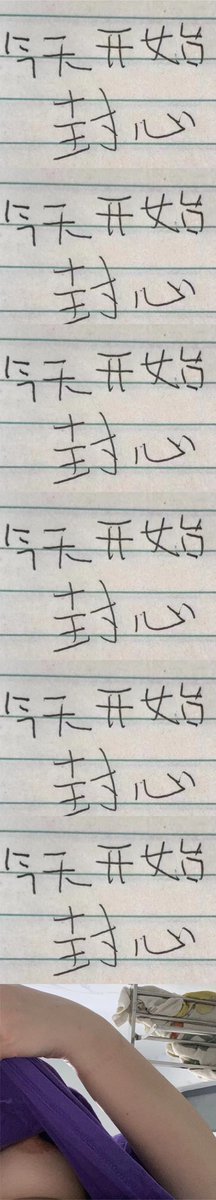 今天开始
封心
今天开始
封心
今天开始
封心
今天开始
封心
今天开始
封心
今天开始
封心